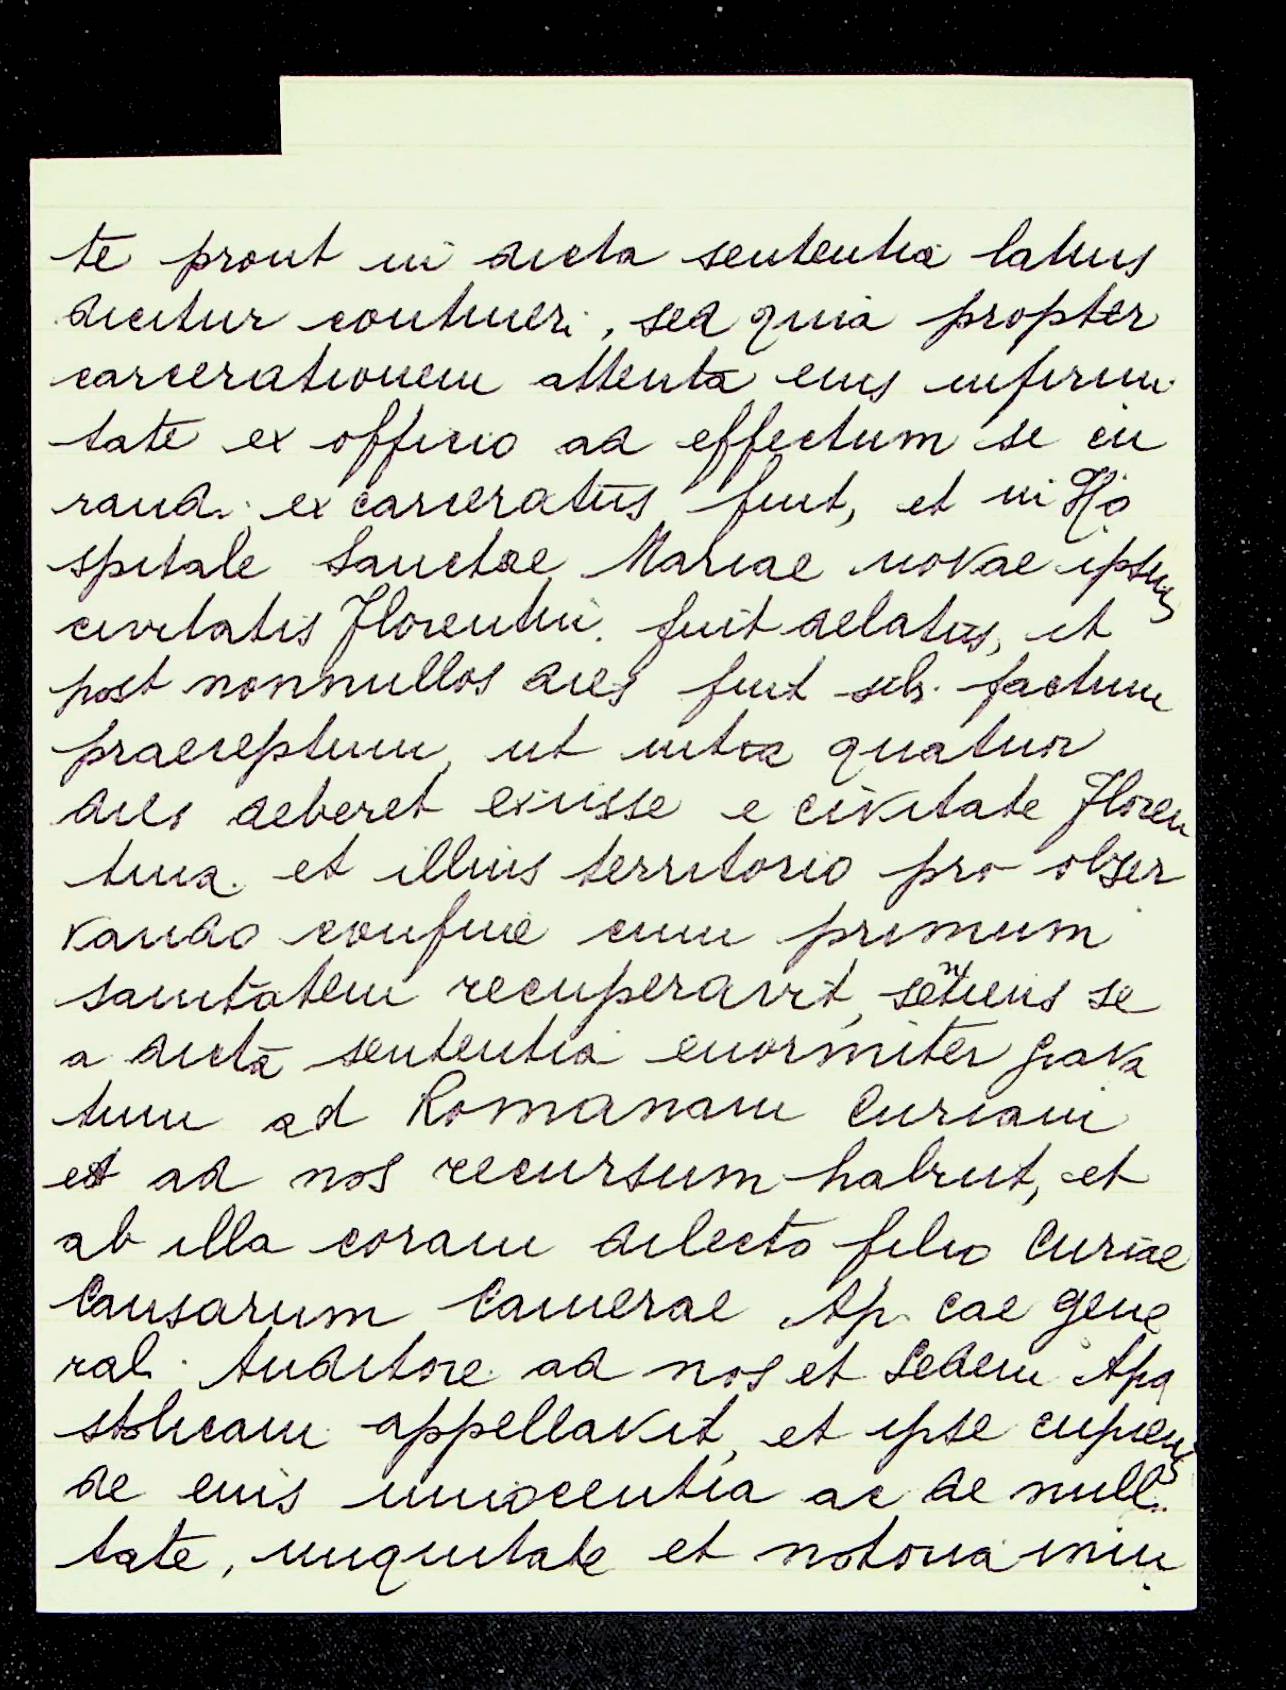 te prout in dicta sententia latius
dicitur contineri, sed quia propter
carcerationem attenta eius infirmi
tate ex officio ad effectum se cu
randi excarceratus fuit, et in Ho
spitale Sanctae Mariae novae ipsius
civitatis Florentin. fuit delatus, et
post nonnullos dies fuit sibi factum
praeceptum, ut intra quatuor
dies deberet exiisse e civitate Floren
tina et illius territorio pro obser
vando confine cum primum
sanitatem recuperavit, sentiens se
a dicta sententia enormiter grava
tum ad Romanam Curiam
et ad nos recursum habuit, et
ab illa coram dilecto filio Curiae
Causarum Camerae Ap. cae gene
rali Auditore ad nos et Sedem Apo
stolicam appellavit, et ipse cupiens
de eius innocentia ac de nulli
tate, iniquitate et notoria iniu